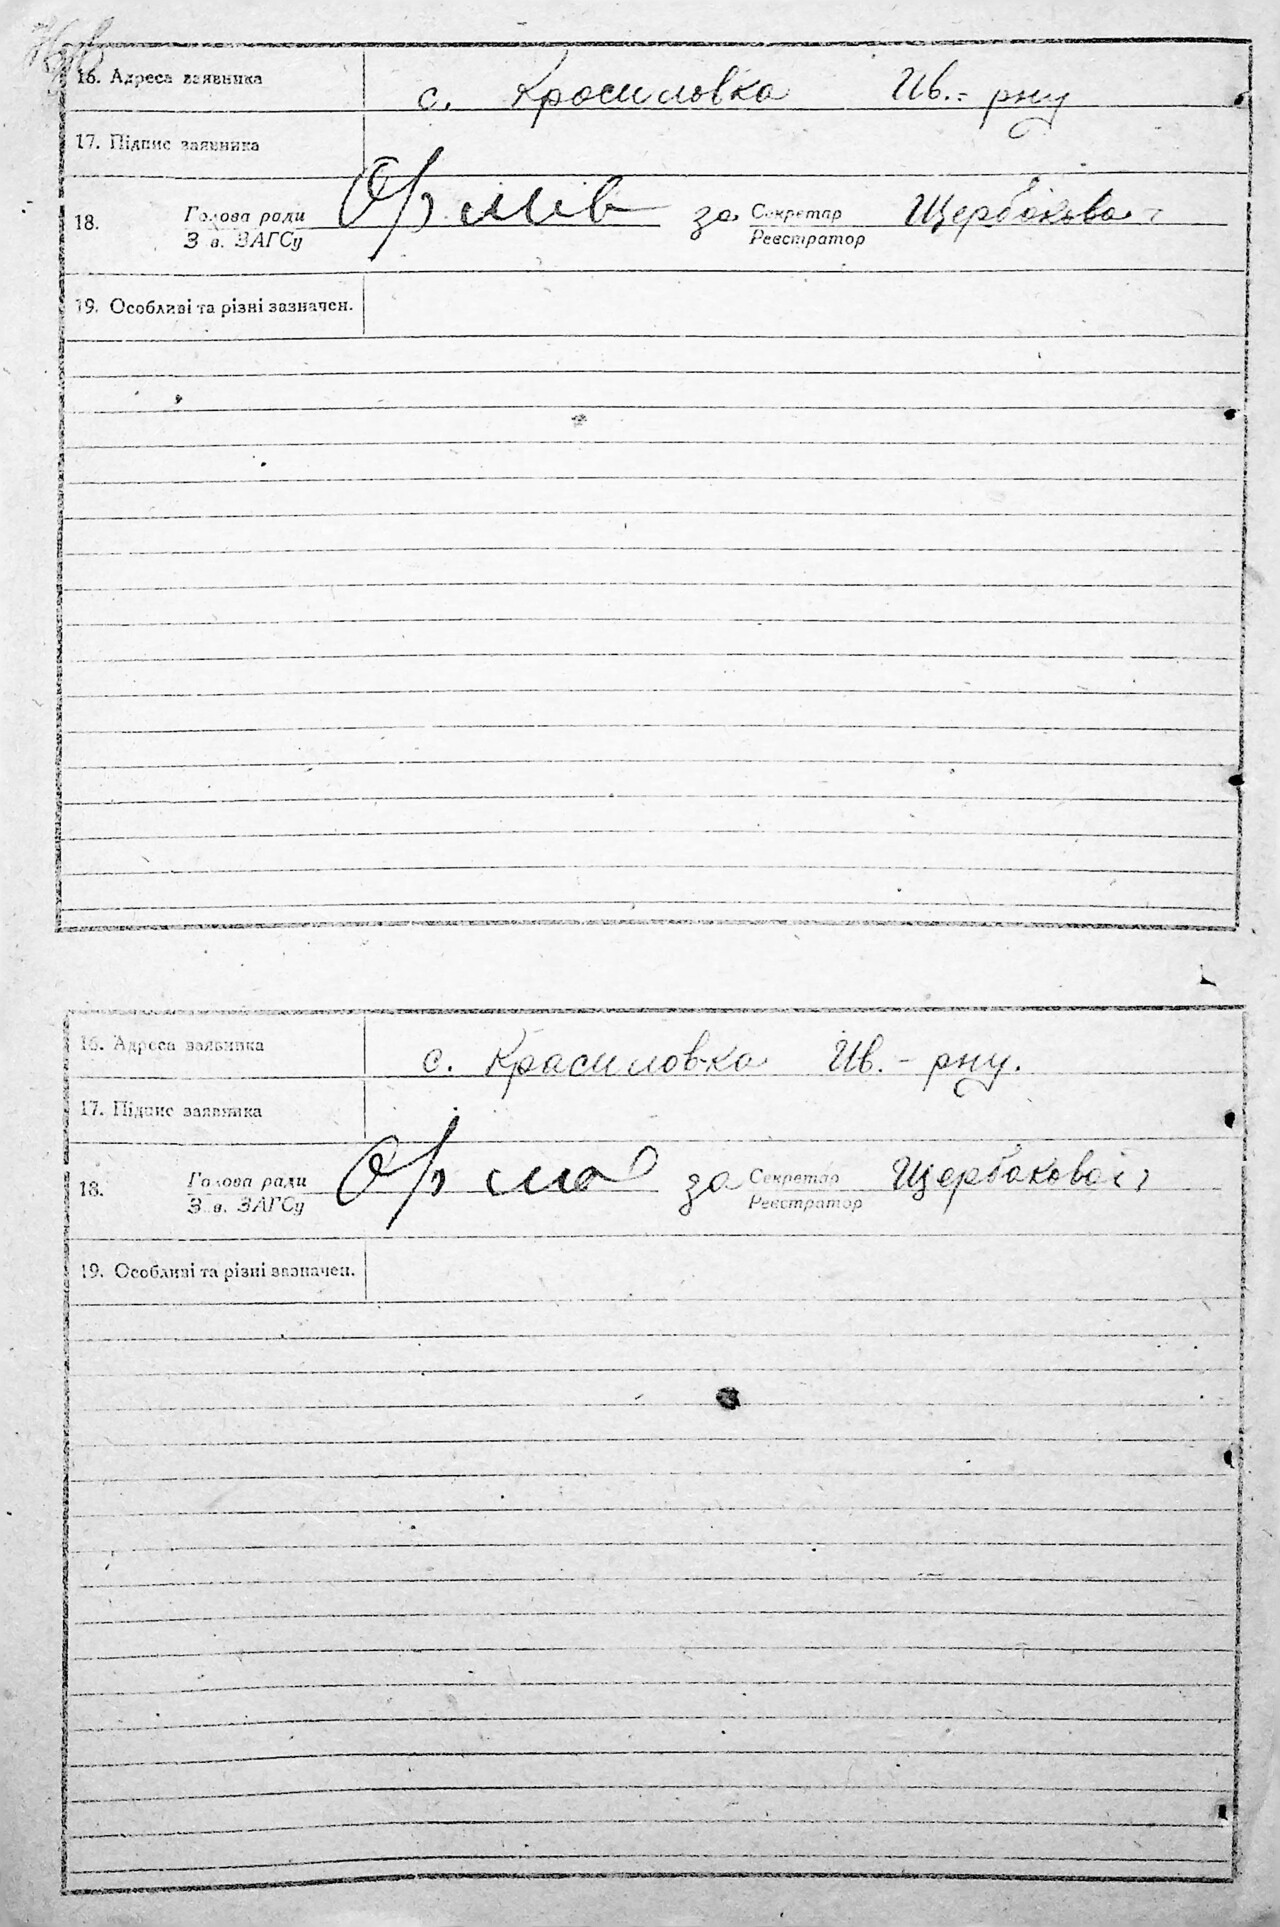 16. Адреса заявника с. Красиловка Ив.- рну
17. Підпис заявника
18. Голова ради за Секретар Щербакова
Зав. ЗАГСу Реєстратор
19. Особливі та різні зазначен.
16. Адреса заявника с. Красиловка Ив. - рну.
17. Підпис заявника
18. Голова ради за Секретар Щербакова
Зав. ЗАГСу Реєстратор
19. Особливі та різні зазначен.